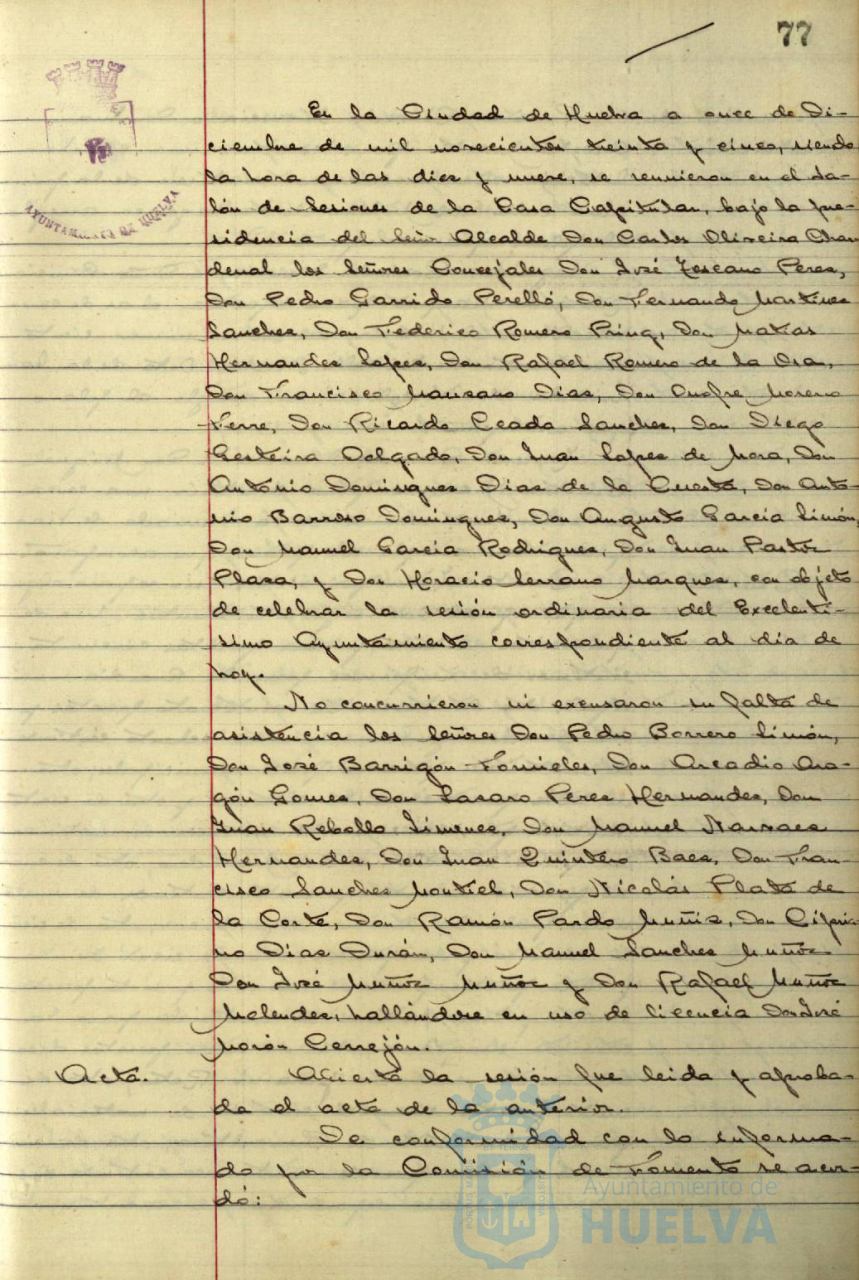 77
AYUNTAMIENTO DE HUELVA
En la Ciudad de Huelva a once de Di-
ciembre de mil novecientos treinta y cinco, siendo
la hora de las diez y nueve, se reunieron en el Sa-
lón de Sesiones de la Casa Capitular, bajo la pre-
sidencia del Señor Alcalde Don Carlos Oliveira Chan-
denal los Señores Concejales Don José Lescano Peres,
Don Pedro Garrido Perelló, Don Fernando Martines
Sanches, Don Federico Romero Prinz, Don Matias
Hernandes Lopes, Don Rafael Romero de la Osa,
Don Francisco Manzano Dias, Don Onofre Moreno
Ferre, Don Ricardo Ceada Sanches, Don Diego
Gesteira Delgado, Don Juan Lopes de Mora, Don
Antonio Domingues Dias de la Cuesta, Don Anto-
nio Barroso Domingues, Don Augusto Garcia Limón,
Don Manuel García Rodrigues, Don Juan Pastor
Plasa, y Don Horacio Serrano Marques, con objeto
de celebrar la sesión ordinaria del Excelentí-
simo Ayuntamiento correspondiente al día de
hoy.
No concurrieron ni excusaron su falta de
asistencia los Señores Don Pedro Borrero Limón,
Don José Barrigón Fornieles, Don Arcadio Ara-
gón Gomes, Don Lasaro Peres Hernandes, Don
Juan Rebollo Jimenes, Don Manuel Narvaes
Hernandes, Don Juan Quintero Baes, Don Fran-
cisco Sanches Montiel, Don Nicolás Plata de
la Corte, Don Ramón Pardo Muñis, Don Cipria-
no Dias Durán, Don Manuel Sanches Muñoz
Don José Muñoz Muñoz y Don Rafael Muñoz
Melendes, hallándose en uso de licencia Don José
Morón Cerrejón.
Acta. Abierta la sesión fue leida y aproba-
da el acta de la anterior.
De conformidad con lo informa-
do por la Comisión de Fomento se acor-
dó:
Ayuntamiento de
HUELVA